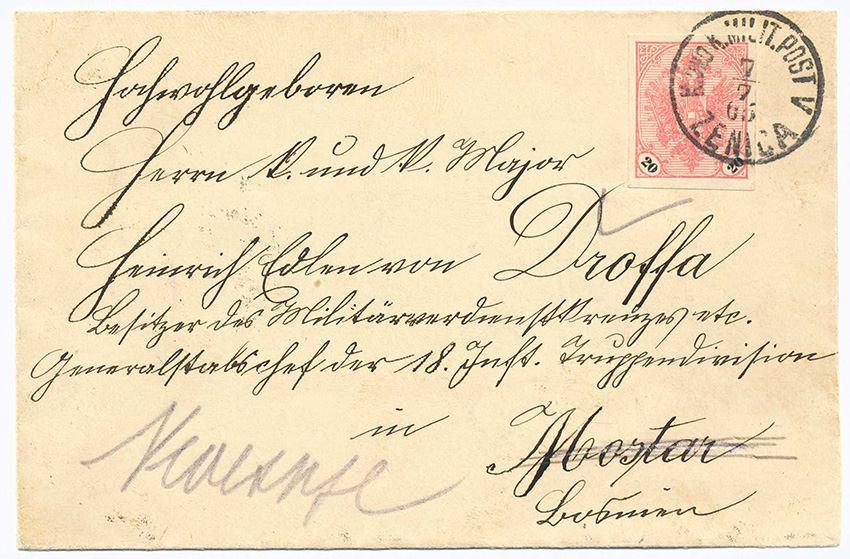 K. UND K. MILIT. POST V
7
7
05
ZENICA
20 20
Hochwohlgeboren
Herrn K. und K. Major
Heinrich Edlen von Droffa
Besitzer des Militärverdienstkreuzes etc.
Generalstabschef der 18. Inft. Truppendivision
in Mostar
Bosnien